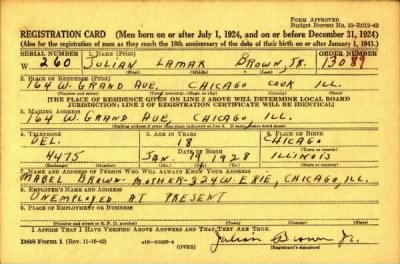 FORM APPROVED
Budget Bureau No. 33-R012-42
REGISTRATION CARD (Men born on or after July 1, 1924, and on or before December 31, 1924)
(Also for the registration of men as they reach the 18th anniversary of the date of their birth on or after January 1, 1943.)
SERIAL NUMBER 1. NAME (Print) ORDER NUMBER
W. 260 JULIAN LAMAR BROWN, JR. 13089
2. PLACE OF RESIDENCE (Print)
164 W. GRAND AVE, CHICAGO COOK ILL.
[THE PLACE OF RESIDENCE GIVEN ON LINE 2 ABOVE WILL DETERMINE LOCAL BOARD
JURISDICTION; LINE 2 OF REGISTRATION CERTIFICATE WILL BE IDENTICAL]
3. MAILING ADDRESS
164 W. GRAND AVE, CHICAGO, ILL.
4. TELEPHONE 5. AGE IN YEARS 6. PLACE OF BIRTH
DEL. 18 CHICAGO
DATE OF BIRTH (Town or county)
4475 JAN. 1928 ILLINOIS
7. NAME AND ADDRESS OF PERSON WHO WILL ALWAYS KNOW YOUR ADDRESS
MABEL BROWN-MOTHER-324 W. ERIE, CHICAGO, ILL.
8. EMPLOYER'S NAME AND ADDRESS
UNEMPLOYED AT PRESENT
9. PLACE OF EMPLOYMENT OR BUSINESS
(Number and street or R. F. D. number) (Town) (County) (State)
I AFFIRM THAT I HAVE VERIFIED ABOVE ANSWERS AND THAT THEY ARE TRUE.
DSS Form 1 (Rev. 11-16-42) (OVER) Julian Brown Jr.
(Registrant's signature)